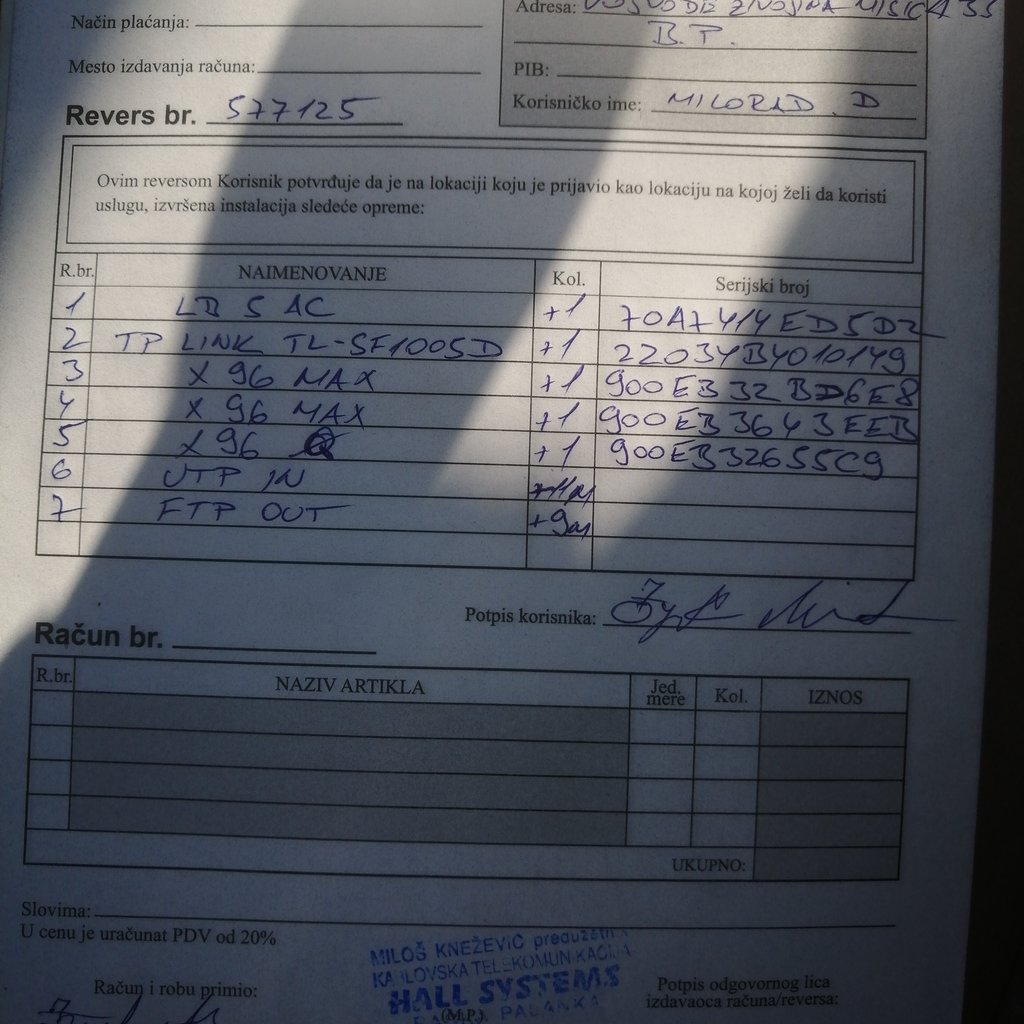 Način plaćanja:
Adresa: VOJVODE ZIVOJINA MISICA 33
B.P.
Mesto izdavanja računa:
PIB:
Korisničko ime: MILORAD.D
Revers br. 577125
Ovim reversom Korisnik potvrđuje da je na lokaciji koju je prijavio kao lokaciju na kojoj želi da koristi
uslugu, izvršena instalacija sledeće opreme:
R.br. NAIMENOVANJE Kol. Serijski broj
1 LB 5 AC +1 70A7414ED5D2
2 TP LINK TL-SF1005D +1 22034B4010149
3 X 96 MAX +1 900EB32BD6E8
4 X 96 MAX +1 900EB3643EEB
5 X 96 +1 900EB32655C9
6 UTP IN
7 FTP OUT +9m
Potpis korisnika:
Račun br.
R.br. NAZIV ARTIKLA Jed. mere Kol. IZNOS
UKUPNO:
Slovima:
U cenu je uračunat PDV od 20%
MILOŠ KNEŽEVIĆ preduzetn
KABLOVSKA TELEKOMUNIKACIJA
HALL SYSTEMS
PALANKA
(M.P.)
Račun i robu primio:
Potpis odgovornog lica
izdavaoca računa/reversa: